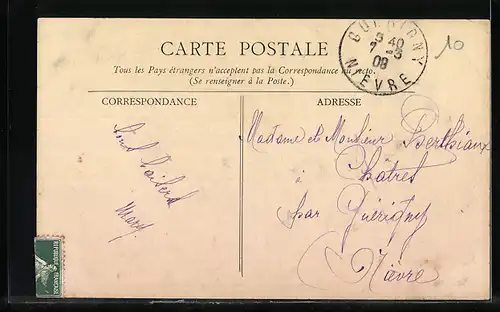 CARTE POSTALE
Tous les Pays étrangers n'acceptent pas la Correspondance au recto.
(Se renseigner à la Poste.)
CORRESPONDANCE
ADRESSE
GUÉRIGNY
5 40
7 -5
08
NIÈVRE
10
Mary
Madame et Monsieur Berthiaux
Châtres
à
par Guérigny
Nièvre